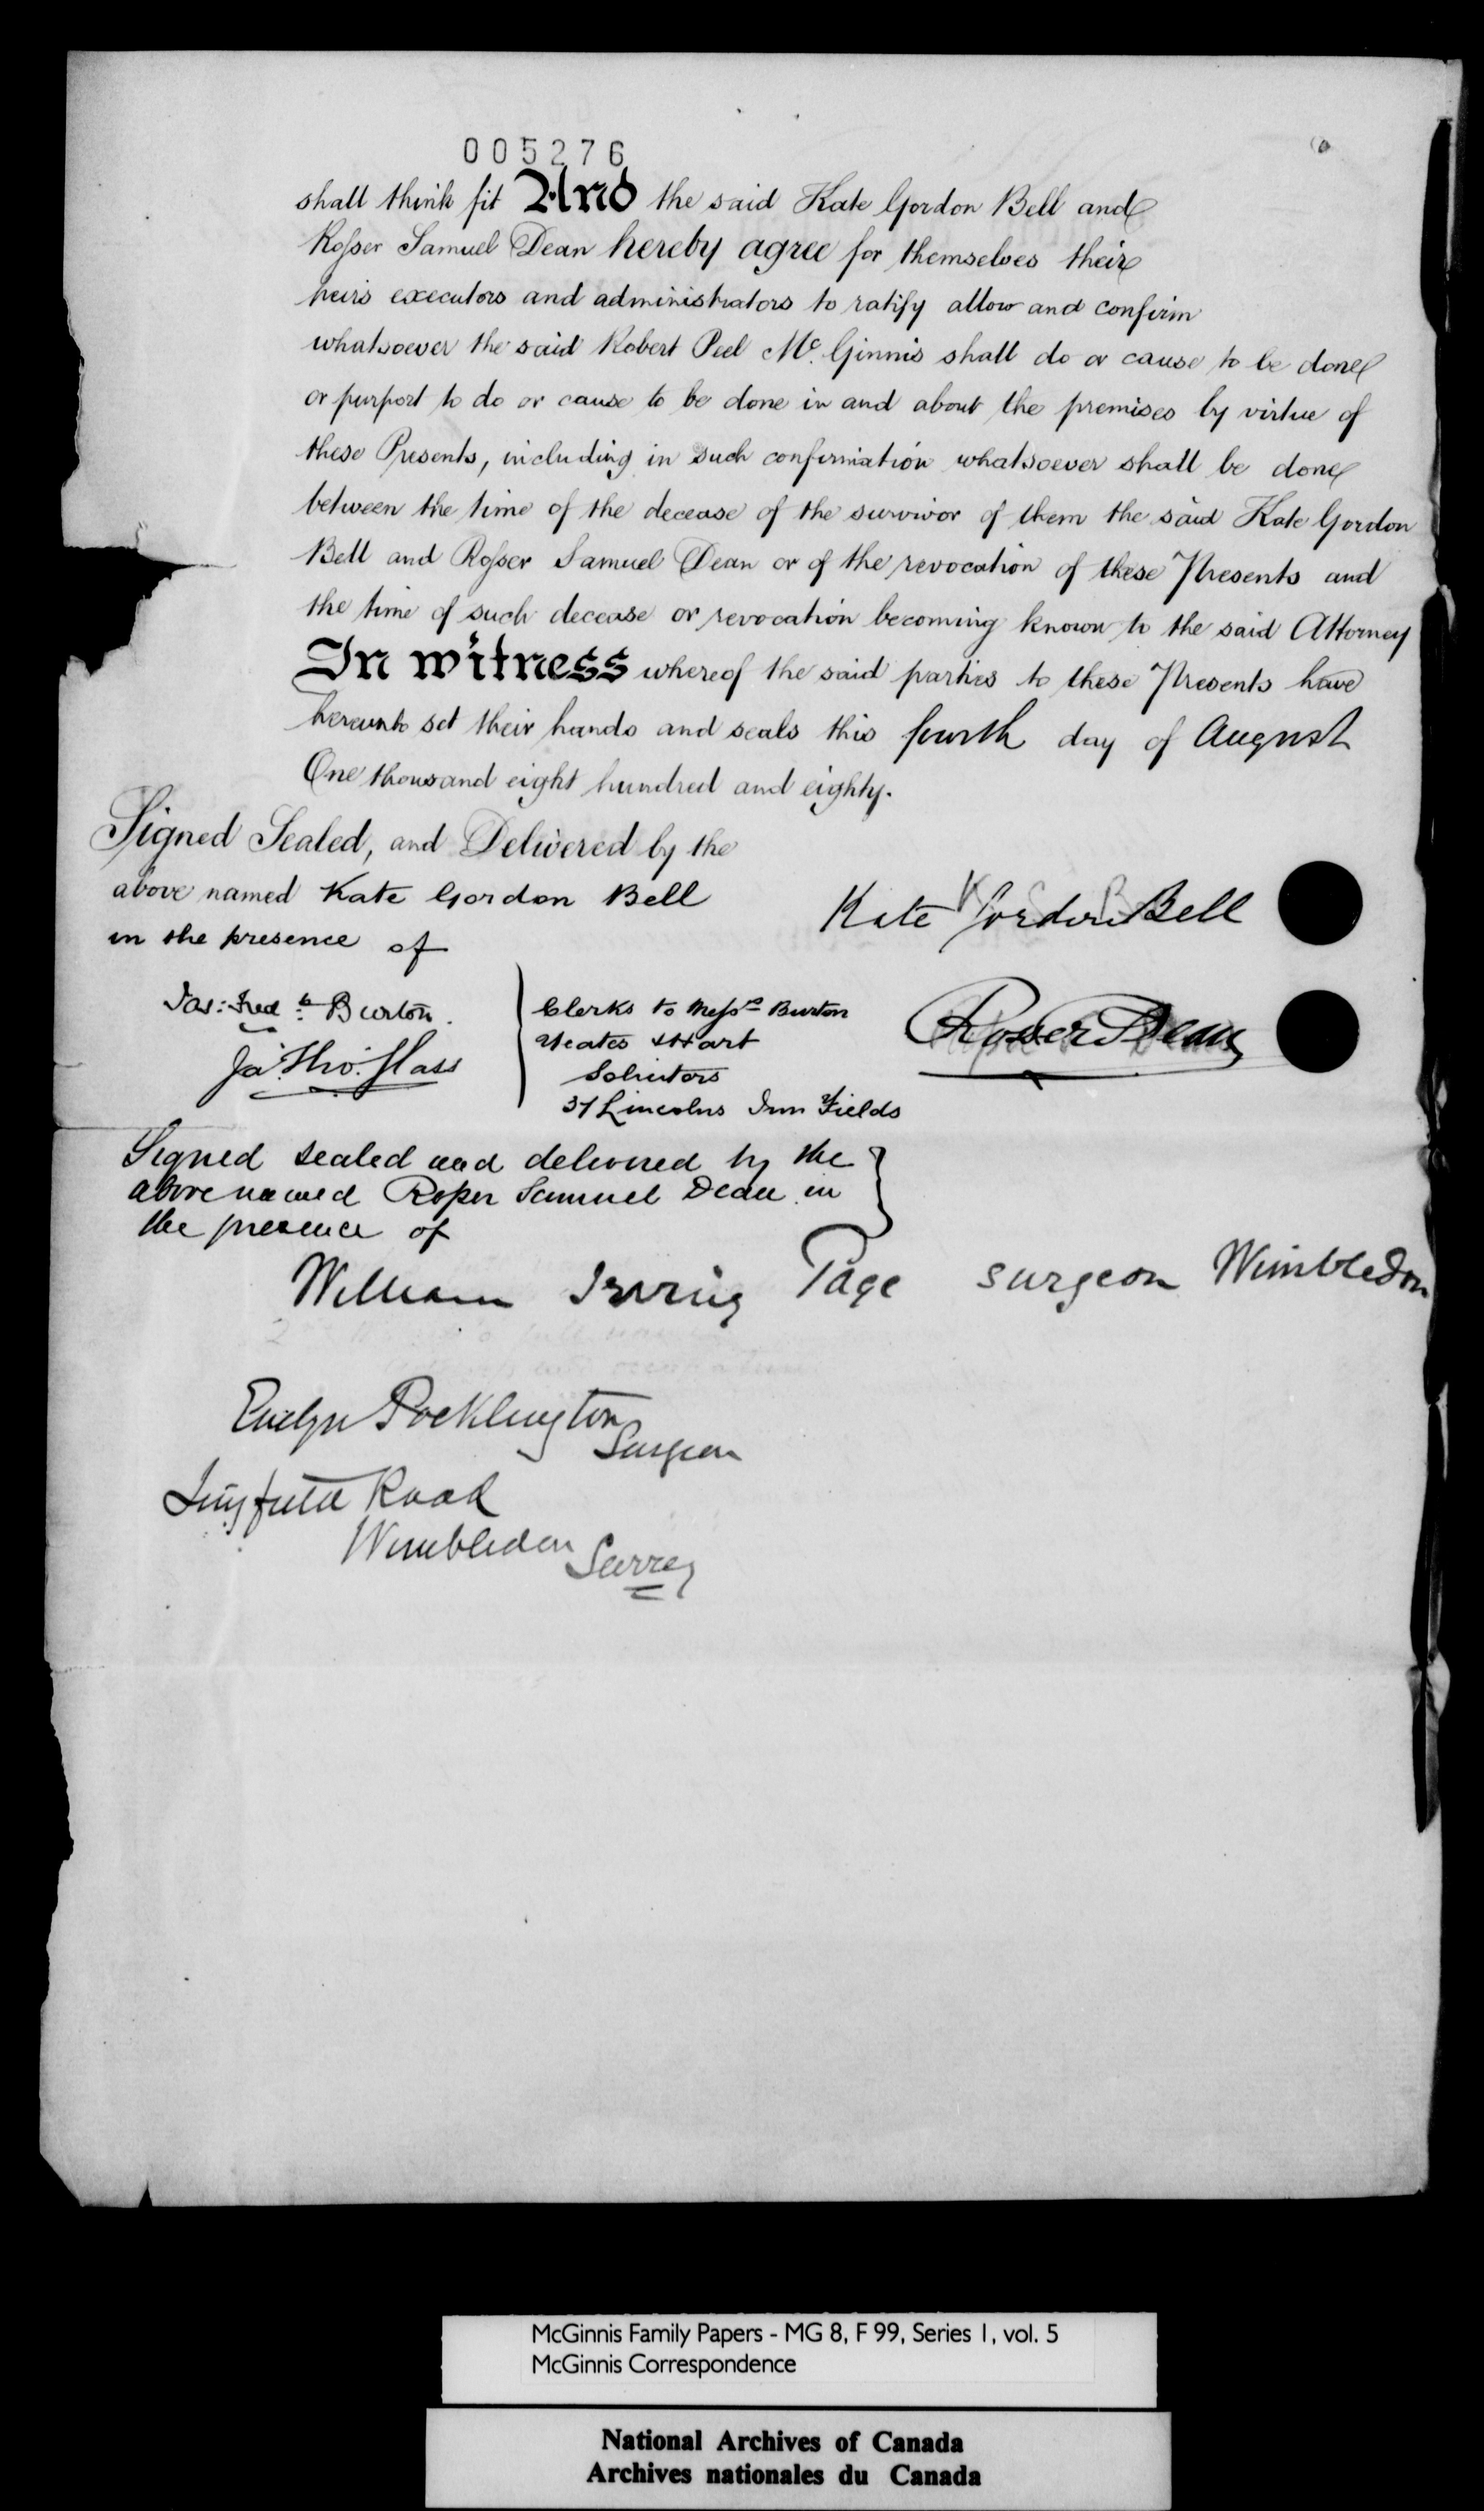 005276
shall think fit And the said Kate Gordon Bell and
Rosser Samuel Dean hereby agree for themselves their
heirs executors and administrators to ratify allow and confirm
whatsoever the said Robert Peel Mc. Ginnis shall do or cause to be done
or purport to do or cause to be done in and about the premises by virtue of
these Presents, including in such confirmation whatsoever shall be done
between the time of the decease of the survivor of them the said Kate Gordon
Bell and Rosser Samuel Dean or of the revocation of these Presents and
the time of such decease or revocation becoming known to the said Attorney
In witness whereof the said parties to these Presents have
hereunto set their hands and seals this fourth day of August
One thousand eight hundred and eighty.
Signed Sealed, and Delivered by the
above named Kate Gordon Bell
in the presence of
Kate Gordon Bell
Jas: Fredk. Burton.
Jas. Tho. Glass
Clerks to Messrs Burton
Yeates & Hart
Solicitors
37 Lincolns Inn Fields
Rosser S Dean
Signed sealed and delivered by the
above named Rosser Samuel Dean in
the presence of
William Irving Page surgeon Wimbledon
Evelyn Pocklington
Surgeon
Road
Wimbledon
Surrey
McGinnis Family Papers - MG 8, F 99, Series 1, vol. 5
McGinnis Correspondence
National Archives of Canada
Archives nationales du Canada